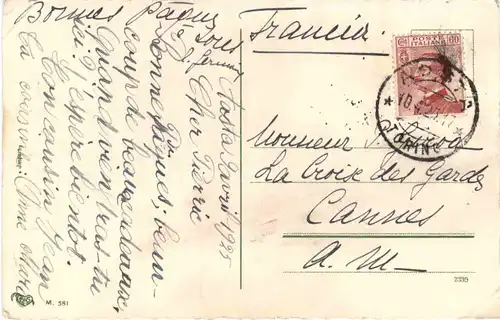 Bonnes Pâques
à tous
Aosta 2 avril 1925
Cher Pierre
Bonnes Pâques; beau-
coup de beaux cadeaux.
Quand viendras-tu
ici? J'espère bientôt.
Ton cousin Jean
Ta cousine Anne Marie
Francia
POSTE
ITALIANE
60
TORINO
Monsieur
La Croix des Gardes
Cannes
A. M.
M. 581
2339